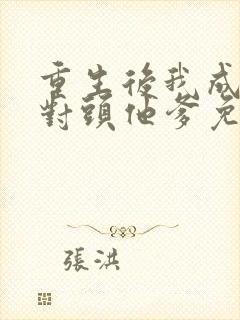 重生後我成
對頭他爹免
張洪